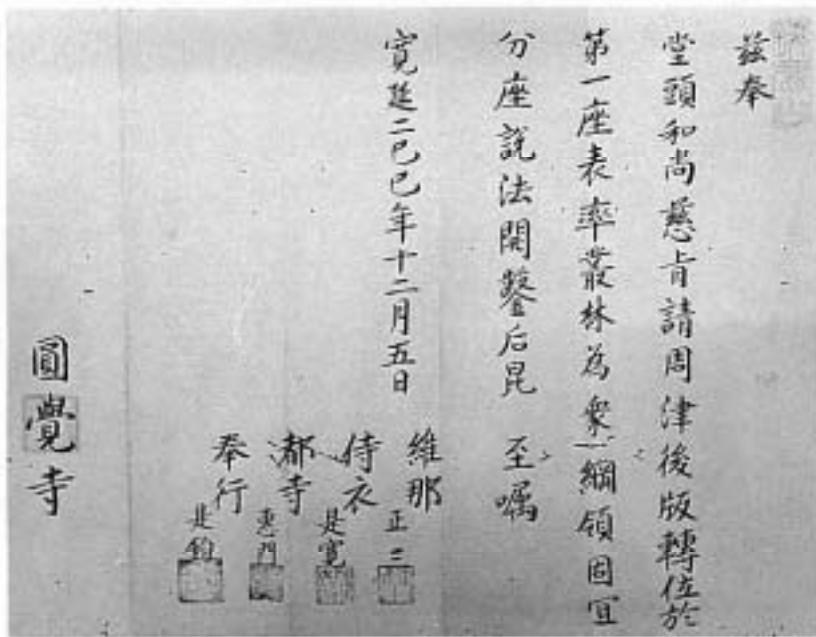 茲奉
堂頭和尚慈旨請周津後版轉位於
第一座表率叢林為衆綱領固宜
分座說法開鑿后昆 至囑
寛延二己巳年十二月五日
維那 正
侍衣 是寛
都寺
奉行 是
圓覺寺